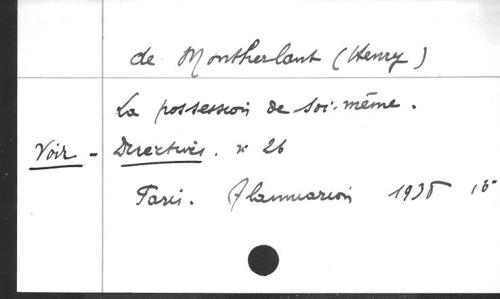 de Montherlant (Henry)
La possession de soi-même.
Voir - Directives. n° 26
Paris. Flammarion 1935 16°